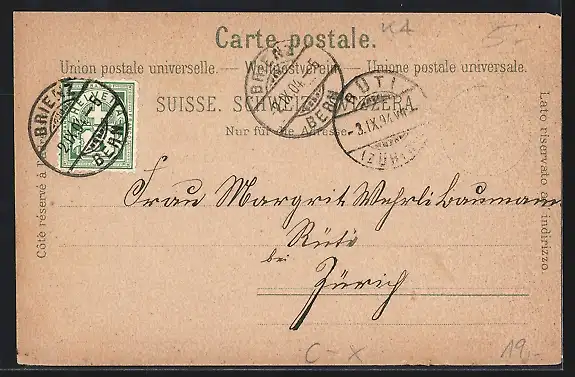 K4
5.-
Carte postale.
Union postale universelle. — Weltpostverein — Unione postale universale.
SUISSE. SCHWEIZ. SVIZZERA.
Nur für die Adresse.
Côté réservé à l'
Lato riservato all'indirizzo.
BRIENZ
2.IX.04.
BERN
BRIENZ
2.IX.04.
BERN
RÜTI
-3.IX.04.
(ZÜRICH)
Frau Margrit Wehrli Baumann
Rüti
bei
Zürich
C-X
19.-